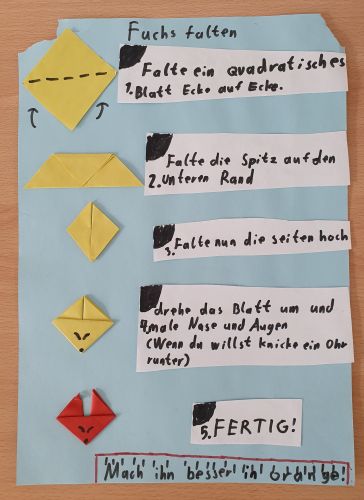 Fuchs falten
Falte ein quadratisches
1. Blatt Ecke auf Ecke.
Falte die Spitz auf den
2. unteren Rand
3. Falte nun die seiten hoch
drehe das Blatt um und
4. male Nase und Augen
(Wenn du willst knicke ein Ohr
runter)
5. FERTIG!
Mach ihn besser in Orange!